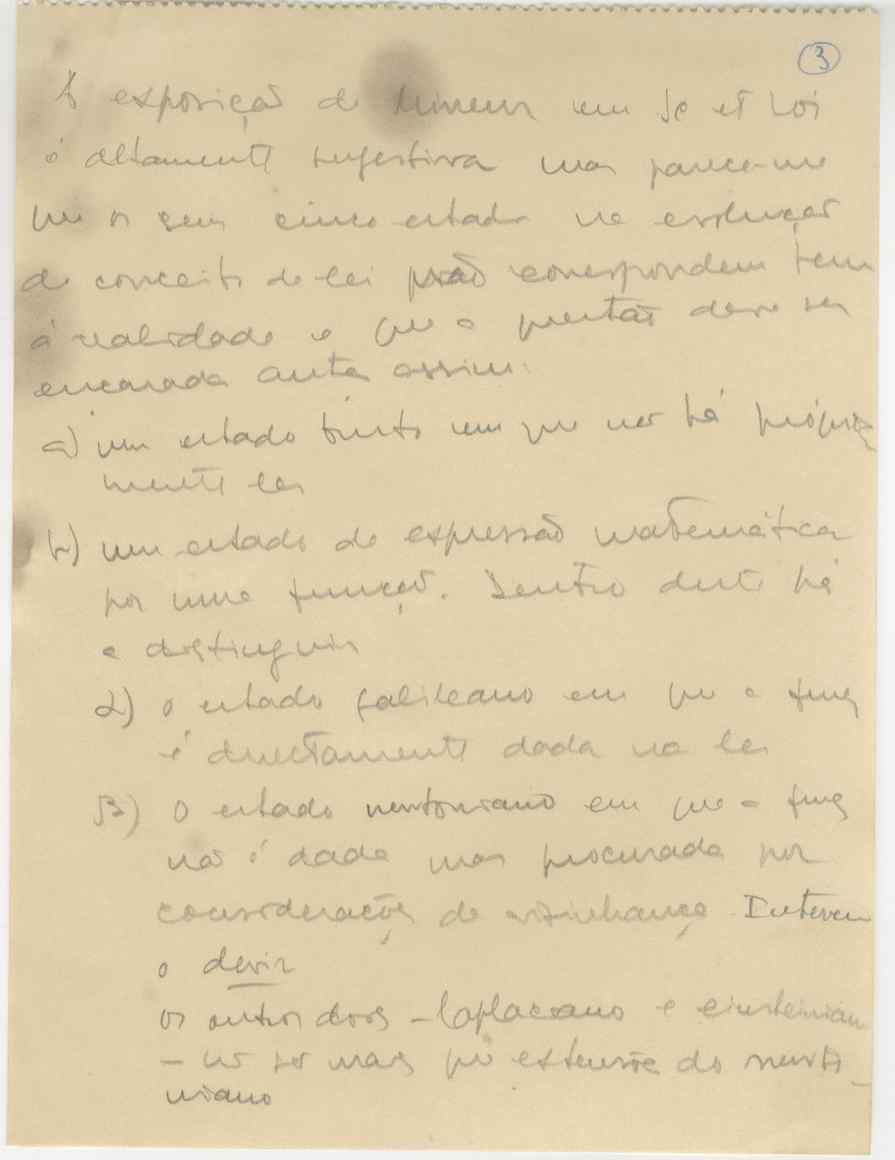 3
A exposição de Mineur em Sc et Loi
é altamente sugestiva mas parece-me
que os seus cinco estados na evolução
do conceito de lei não correspondem bem
à realidade e que a questão deve ser
encarada antes assim:
a) um estado bruto em que não há própria
mente lei
b) um estado de expressão matemática
por uma função. Dentro deste há
a distinguir
α) o estado galileano em que a funç
é directamente dada na lei
β) o estado newtoniano em que a funç
não é dada mas procurada por
considerações de vizinhança. Intervem
o devir
os outros dois – laplaceano e einsteinian
– não são mais que extensões do newto
niano